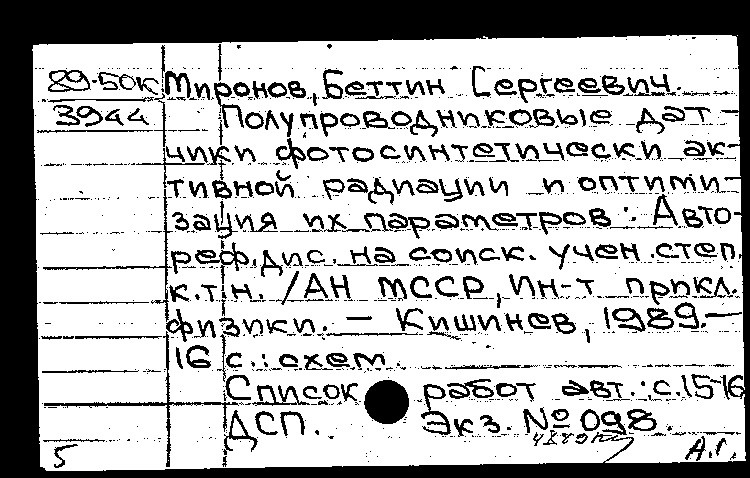 89-50К Миронов, Беттин Сергеевич.
3944 Полупроводниковые дат-
чики фотосинтетически ак-
тивной радиации и оптими-
зация их параметров: Авто-
реф. дис. на соиск. учен. степ.
к.т.н. /АН МССР, Ин-т прикл.
физики. — Кишинев, 1989.—
16 с.: схем.
Список работ авт.: с.15-16
ДСП. Экз. № 098.
5 А.Г.